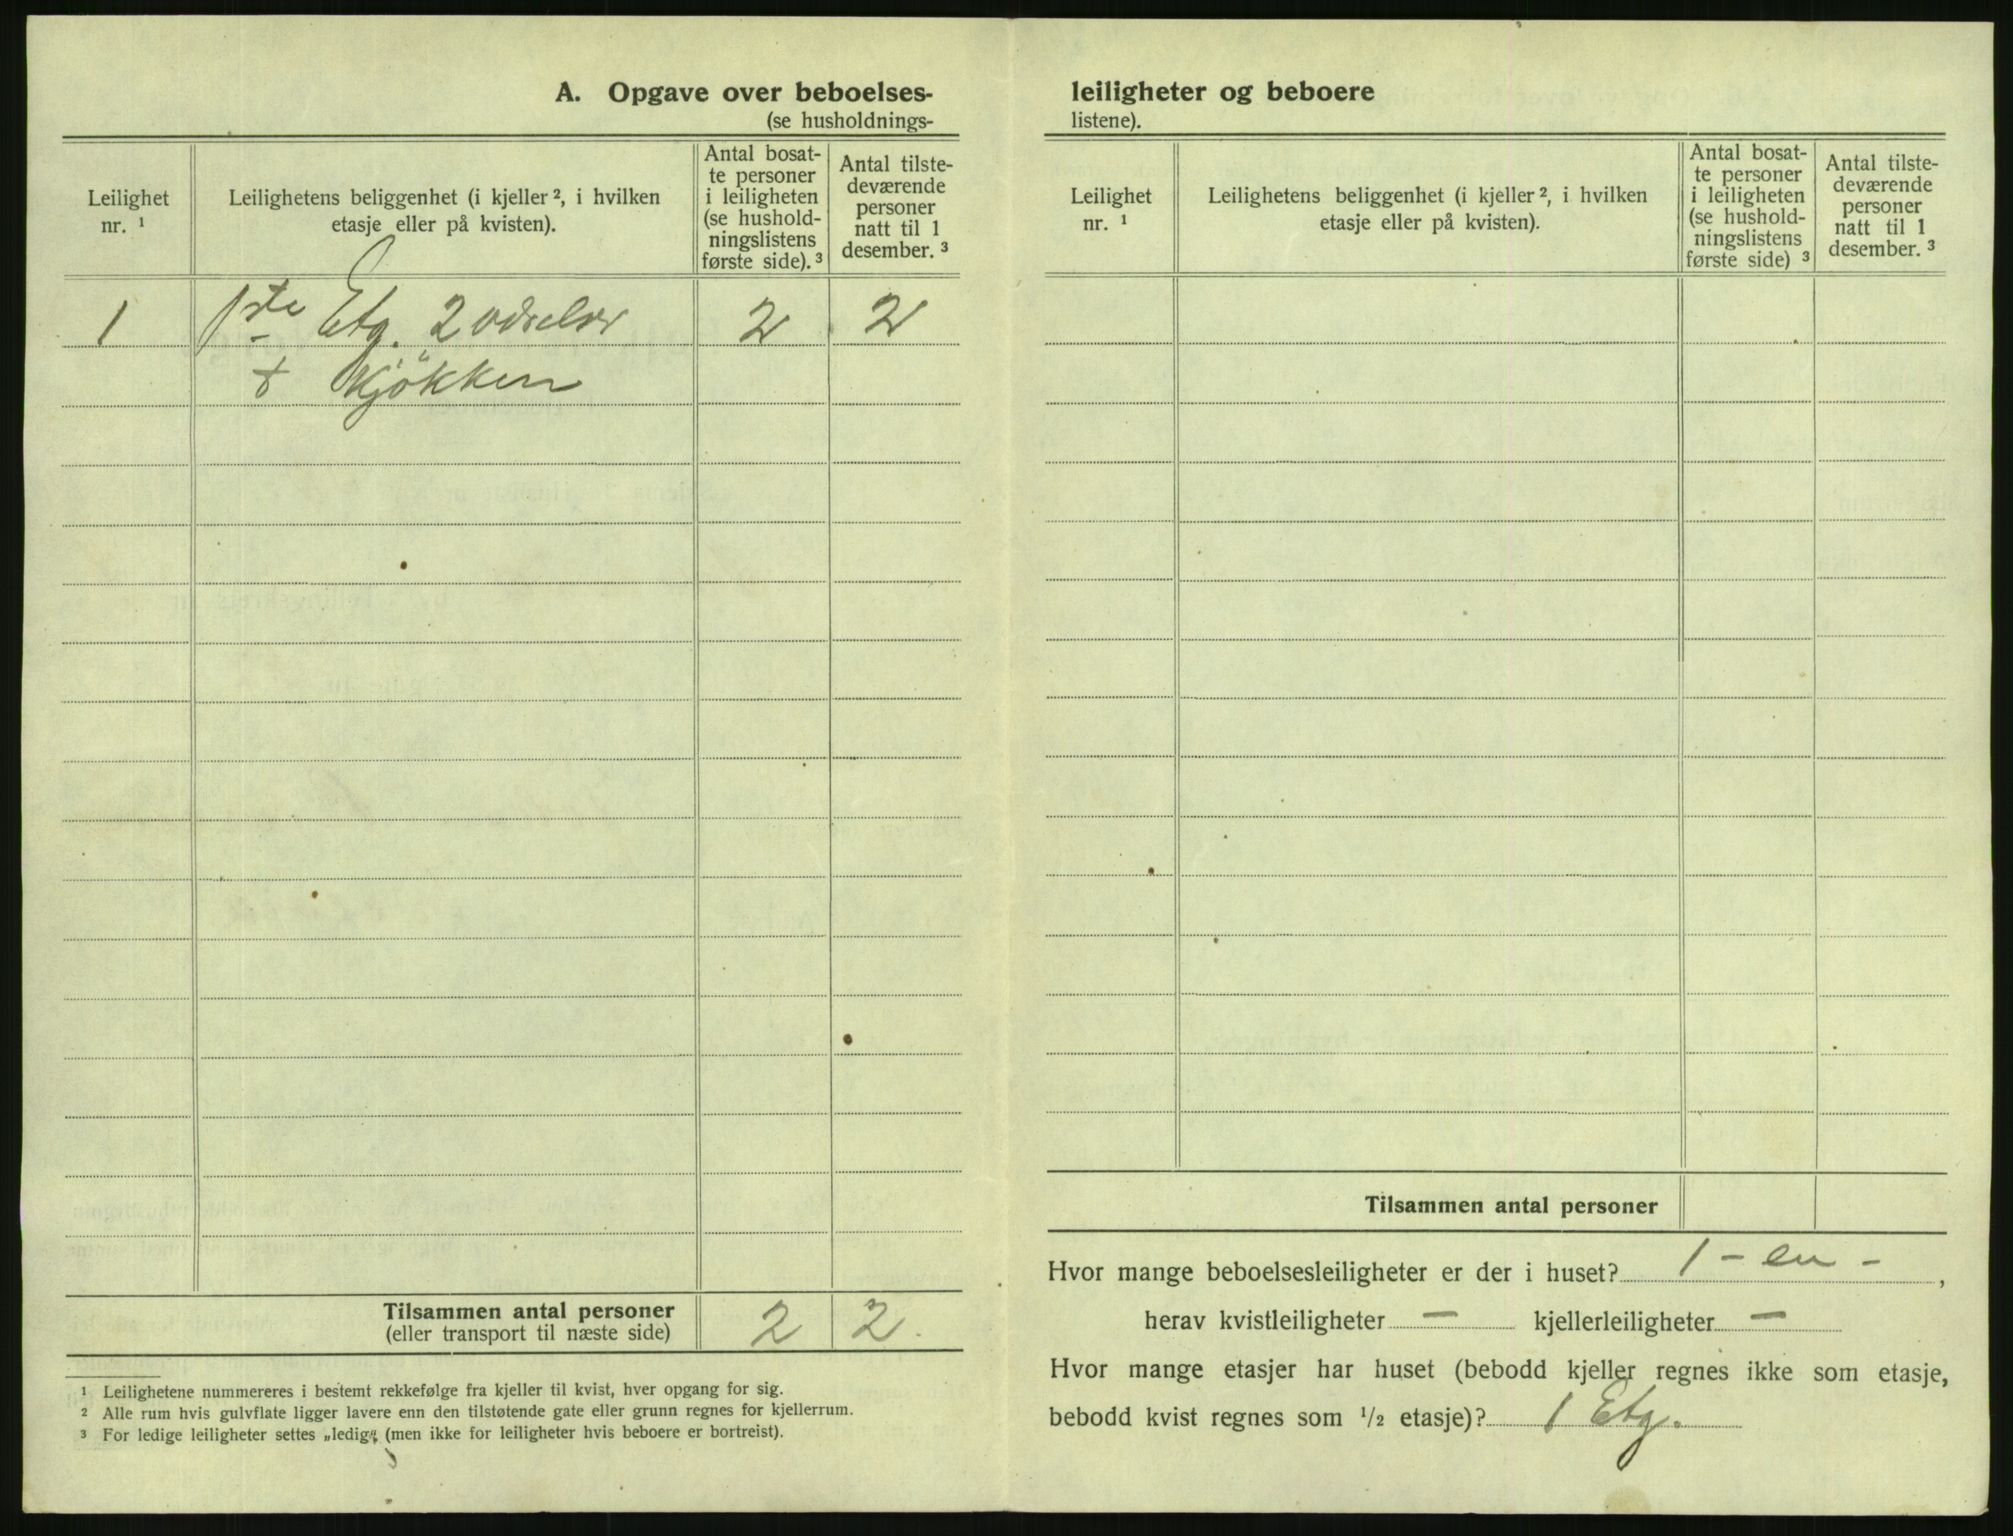 A. Opgave over beboelses-
(se husholdnings-
Leilighet
nr. ¹
Leilighetens beliggenhet (i kjeller ², i hvilken
etasje eller på kvisten).
Antal bosat-
te personer
i leiligheten
(se hushold-
ningslistens
første side). ³
Antal tilste-
deværende
personer
natt til 1
desember. ³
1 1ste Etg. 2 værelser 2 2
+ Kjökken
Tilsammen antal personer 2 2.
(eller transport til næste side)
¹ Leilighetene nummereres i bestemt rekkefølge fra kjeller til kvist, hver opgang for sig.
² Alle rum hvis gulvflate ligger lavere enn den tilstøtende gate eller grunn regnes for kjellerrum.
³ For ledige leiligheter settes „ledig“ (men ikke for leiligheter hvis beboere er bortreist).
leiligheter og beboere
listene).
Leilighet
nr. ¹
Leilighetens beliggenhet (i kjeller ², i hvilken
etasje eller på kvisten).
Antal bosat-
te personer
i leiligheten
(se hushold-
ningslistens
første side) ³
Antal tilste-
deværende
personer
natt til 1
desember. ³
Tilsammen antal personer
Hvor mange beboelsesleiligheter er der i huset? 1 - en - ,
herav kvistleiligheter — kjellerleiligheter —
Hvor mange etasjer har huset (bebodd kjeller regnes ikke som etasje,
bebodd kvist regnes som ½ etasje)? 1 Etg.